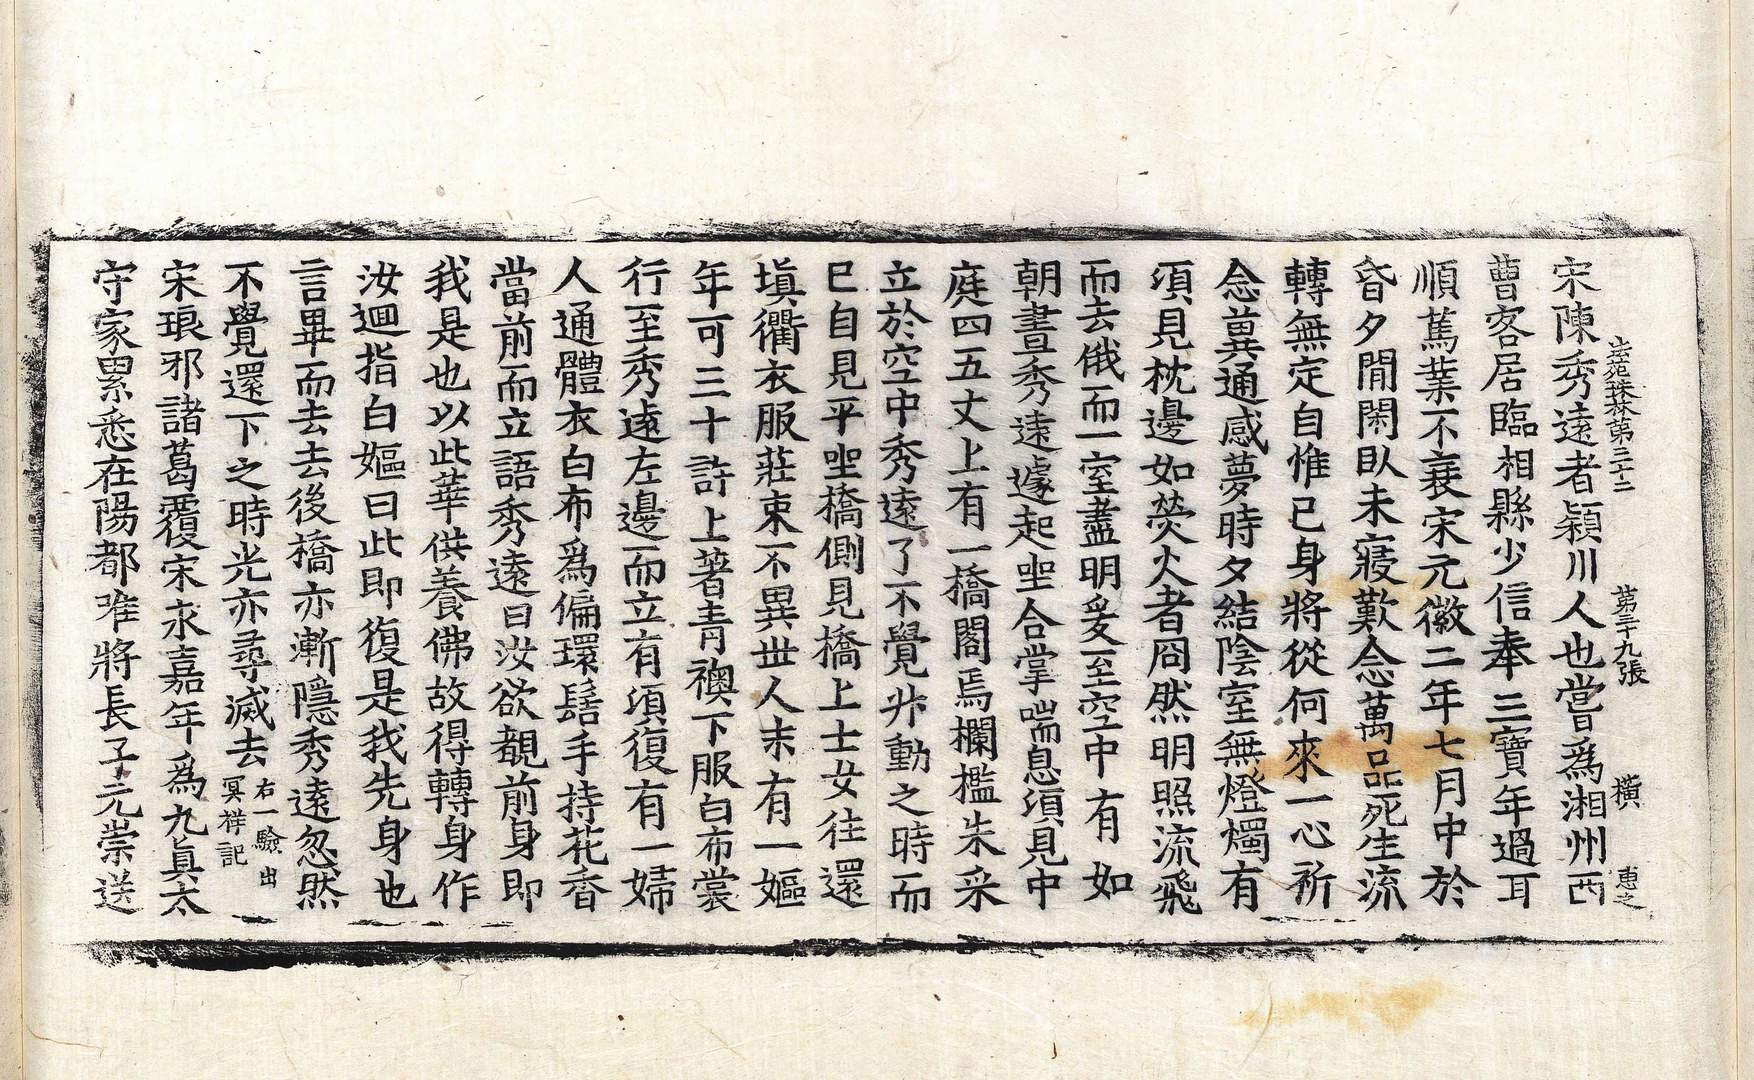 法苑珠林第三十二 第三十九張 橫 惠之
宋陳秀遠者穎川人也嘗爲湘州西
曹客居臨相縣少信奉三寶年過耳
順篤業不衰宋元徽二年七月中於
昏夕閒閑臥未寢歎念萬品死生流
轉無定自惟己身將從何來一心祈
念冀通感夢時夕結陰室無燈燭有
須見枕邊如熒火者冏然明照流飛
而去俄而一室盡明爰至空中有如
朝晝秀遠遽起坐合掌喘息須見中
庭四五丈上有一橋閣焉欄檻朱采
立於空中秀遠了不覺升動之時而
已自見平坐橋側見橋上士女往還
塡衢衣服莊束不異世人末有一嫗
年可三十許上著青襖下服白布裳
行至秀遠左邊而立有須復有一婦
人通體衣白布爲偏環髻手持花香
當前而立語秀遠曰汝欲覩前身即
我是也以此華供養佛故得轉身作
汝迴指白嫗曰此即復是我先身也
言畢而去去後橋亦漸隱秀遠忽然
不覺還下之時光亦尋滅去右一驗出冥祥記
宋琅邪諸葛覆宋永嘉年爲九眞太
守家累悉在陽都唯將長子元崇送